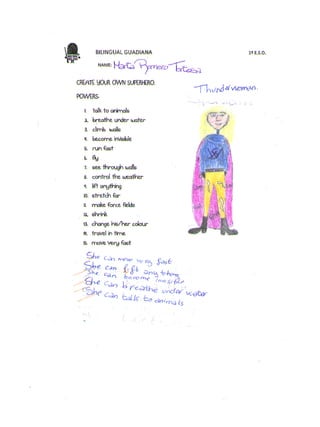 BILINGUAL GUADIANA
1º E.S.O.
NAME: Marta Romero Tortosa
CREATE YOUR OWN SUPERHERO.
Thunderwoman.
POWERS:
1. talk to animals
2. breathe under water
3. climb walls
4. become invisible
5. run fast
6. fly
7. see through walls
8. control the weather
9. lift anything
10. stretch far
11. make force fields
12. shrink
13. change his/her colour
14. travel in time
15. move very fast
She can move very fast
She can lift any thing
She can become invisible
She can breathe under water
She can talk to animals